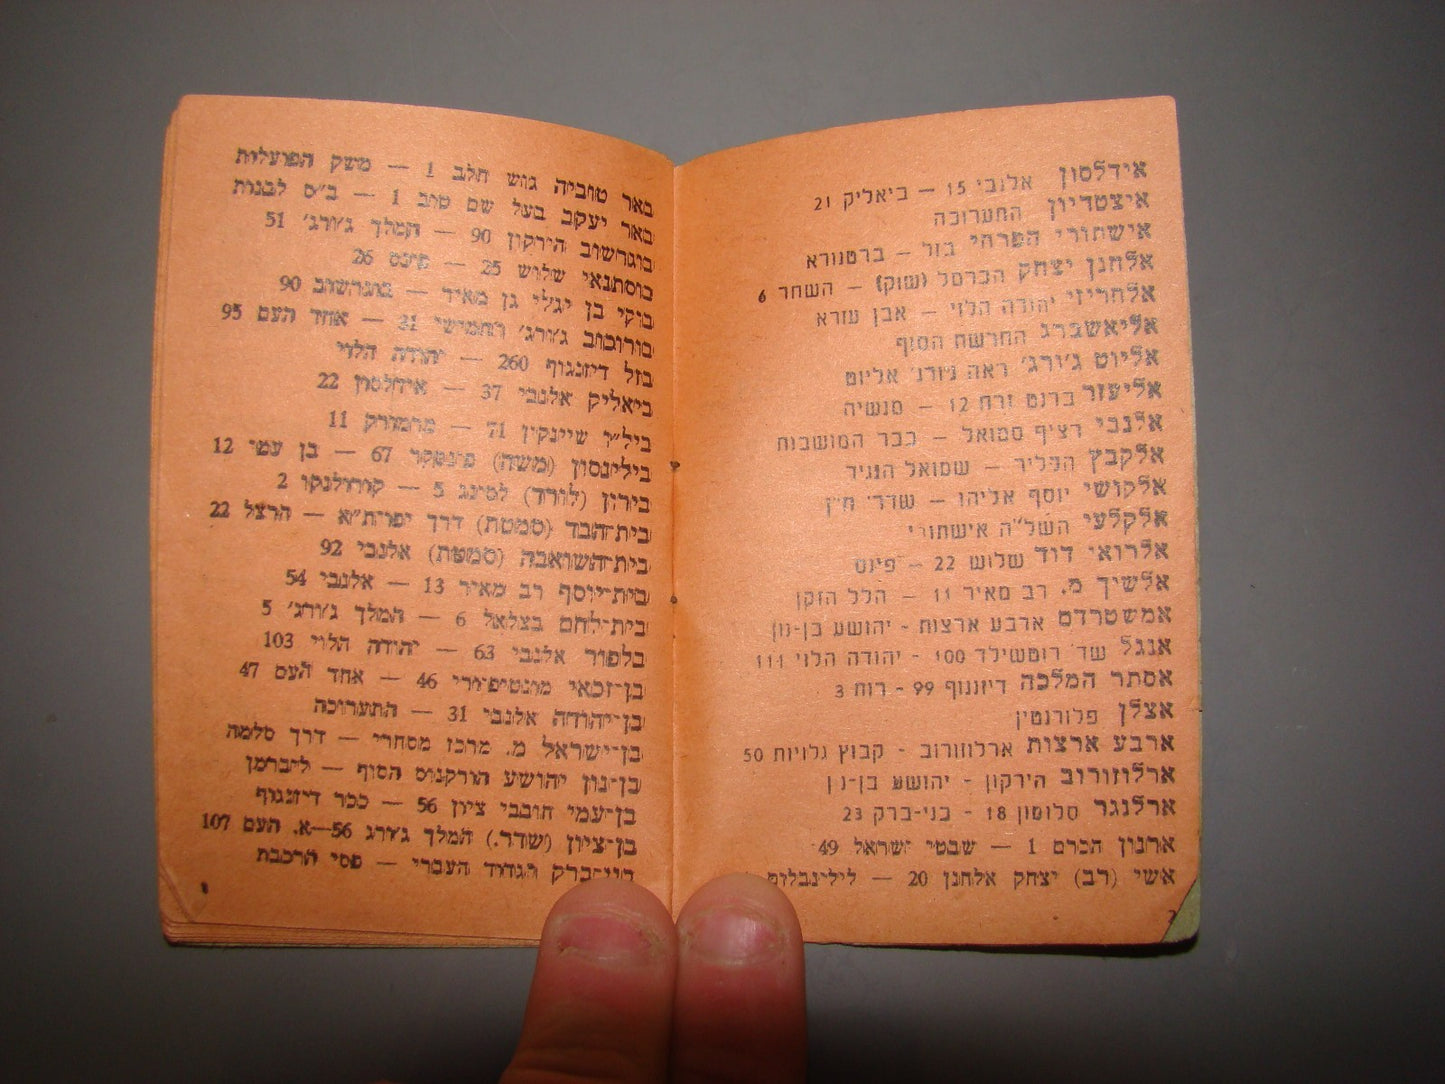 אידלסון אלנבי 15 — ביאליק 21
איצטדיון התערוכה
אישתורי הפרחי בזל — ברטנורא
אלחנן יצחק הכרמל (שוק) — השחר 6
אלחריזי יהודה הלוי — אבן עזרא
אליאשברג החרשת הסוף
אליוט ג'ורג' ראה ג'ורג' אליוט
אליעזר ברנט זרח 12 — מנשיה
אלנבי רציף סמואל — ככר המושבות
אלקבץ הקליר — שמואל הנגיד
אלקושי יוסף אליהו — שדר' ח"ן
אלקלעי השל"ה אישתורי
אלרואי דוד שלוש 22 — פינס
אלשיך מ. רב מאיר 11 — הלל הזקן
אמשטרדם ארבע ארצות - יהושע בן-נון
אנגל שד' רוטשילד 100 - יהודה הלוי 111
אסתר המלכה דיזנגוף 99 - רות 3
אצלן פלורנטין
ארבע ארצות ארלוזורוב - קבוץ גלויות 50
ארלוזורוב הירקון - יהושע בן-נון
ארלנגר סלומון 18 - בני-ברק 23
ארנון הכרם 1 — שבטי ישראל 49
אשי (רב) יצחק אלחנן 20 — לילינבלום
2
באר טוביה גוש חלב 1 — משק הפועלות
באר יעקב בעל שם טוב 1 — ב"ס לבנות
בוגרשוב הירקון 90 — המלך ג'ורג' 51
בוסתנאי שלוש 25 — פינס 26
בוקי בן יגלי גן מאיר — בוגרשוב 90
בורוכוב ג'ורג' החמישי 31 — אחד העם 95
בזל דיזנגוף 260 — יהודה הלוי
ביאליק אלנבי 37 — אידלסון 22
ביל"ו שיינקין 71 — מרמורק 11
בילינסון (משה) פינסקר 67 — בן עמי 12
בירון (לורד) לסינג 5 — קורולנקו 2
בית־הבד (סמטת) דרך יפו־ת"א — הרצל 22
בית־השואבה (סמטת) אלנבי 92
בית־יוסף רב מאיר 13 — אלנבי 54
בית־לחם בצלאל 6 — המלך ג'ורג' 5
בלפור אלנבי 63 — יהודה הלוי 103
בן־זכאי מונטיפיורי 46 — אחד העם 47
בן־יהודה אלנבי 31 — התערוכה
בן־ישראל מ. מרכז מסחרי — דרך סלמה
בן־נון יהושע הורקנוס הסוף — ליברמן
בן־עמי חובבי ציון 56 — ככר דיזנגוף
בן־ציון (שדר.) המלך ג'ורג 56—א. העם 107
בני־ברק הגדוד העברי — פסי הרכבת